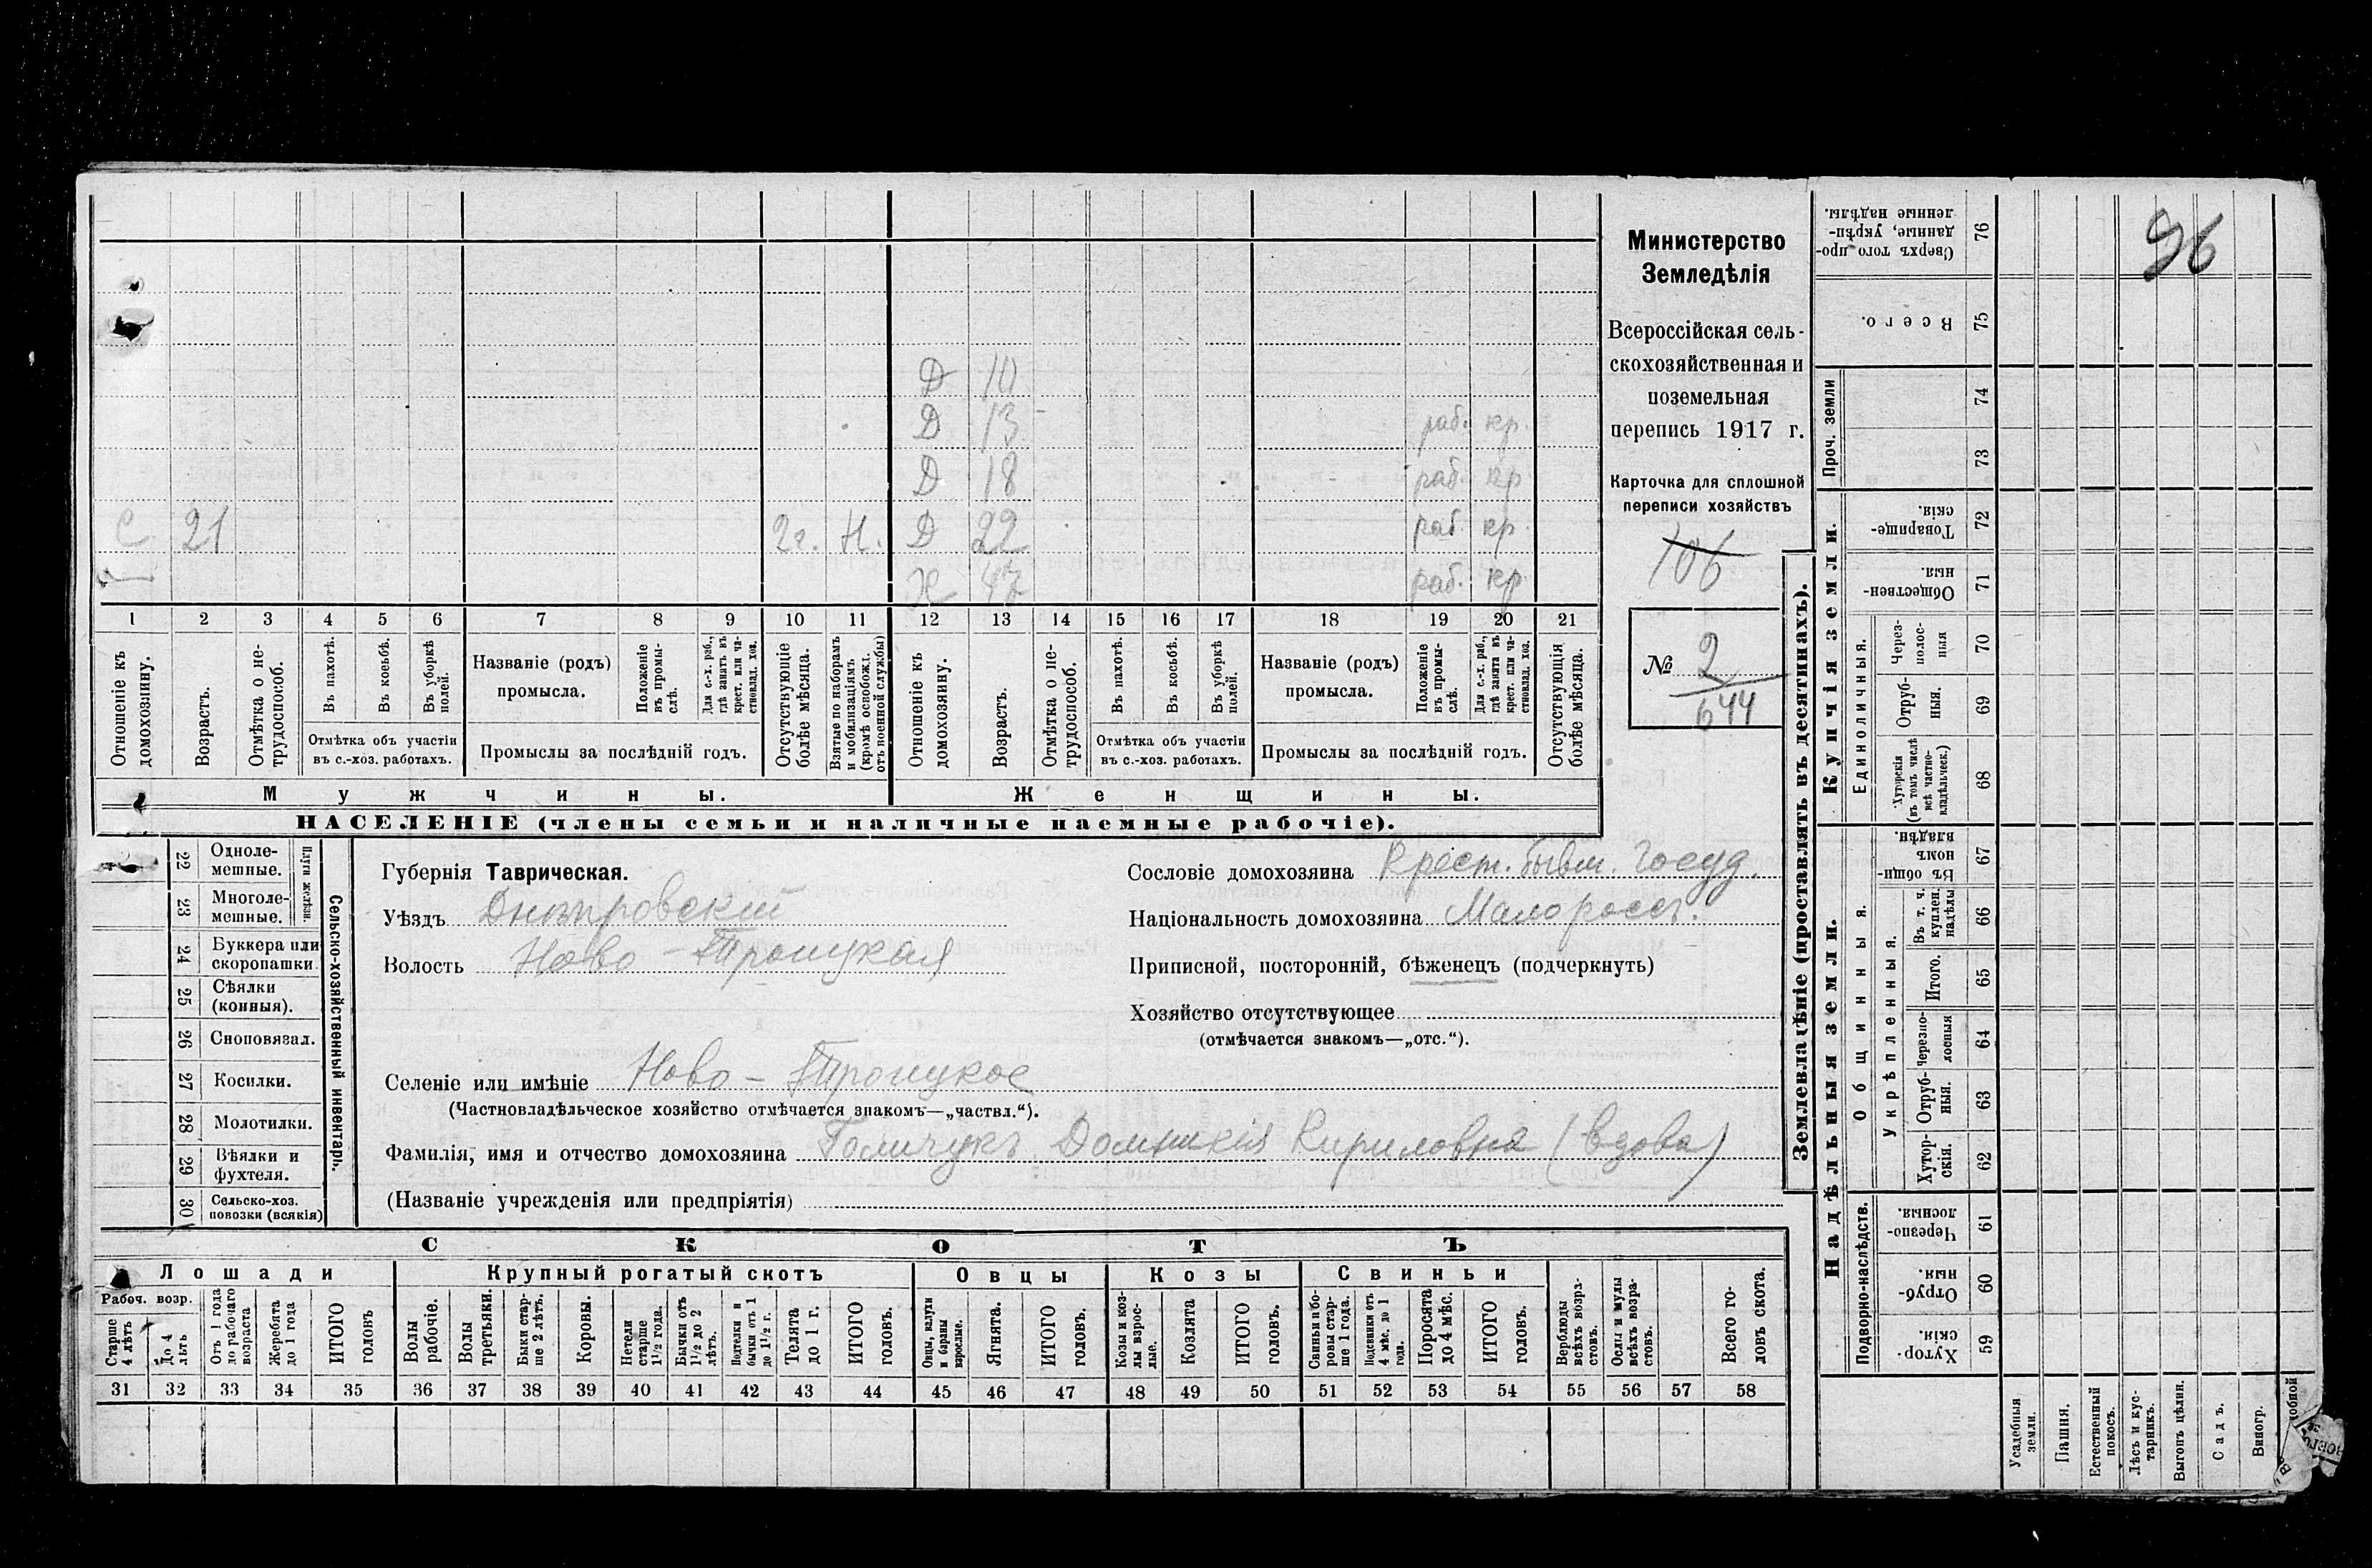 96
Министерство
Земледѣлія
Всероссійская сель-
скохозяйственная и
поземельная
перепись 1917 г.
Карточка для сплошной
переписи хозяйствъ
106
№ 2
644
Д 10
Д 13 раб. кр.
Д 18 раб. кр
С 21 2г. Н. Д 22 раб. кр
Ж 47 раб. кр
1 2 3 4 5 6 7 8 9 10 11 12 13 14 15 16 17 18 19 20 21
Отношеніе къ домохозяину.
Возрастъ.
Отмѣтка о не-трудоспособ.
Въ пахотѣ.
Въ косьбѣ.
Въ уборкѣ полей.
Отмѣтка объ участіи
въ с.-хоз. работахъ.
Названіе (родъ)
промысла.
Положеніе въ промы-слѣ.
Для с.-х. раб., гдѣ занятъ въ крест. или ча-стновлад. хоз.
Промыслы за послѣдній годъ.
Отсутствующіе болѣе мѣсяца.
Взятые по наборамъ и мобилизаціямъ (кромѣ освобожд. отъ военной службы)
Отношеніе къ домохозяину.
Возрастъ.
Отмѣтка о не-трудоспособ.
Въ пахотѣ.
Въ косьбѣ.
Въ уборкѣ полей.
Отмѣтка объ участіи
въ с.-хоз. работахъ.
Названіе (родъ)
промысла.
Положеніе въ промы-слѣ.
Для с.-х. раб., гдѣ занята въ крест. или ча-стновлад. хоз.
Промыслы за послѣдній годъ.
Отсутствующія болѣе мѣсяца.
Мужчины. Женщины.
НАСЕЛЕНІЕ (члены семьи и наличные наемные рабочіе).
Сельско-хозяйственный инвентарь.
Плуги желѣзн.
22 Одноле-мешные.
23 Многоле-мешные.
24 Буккера или скоропашки
25 Сѣялки (конныя).
26 Сноповязал.
27 Косилки.
28 Молотилки.
29 Вѣялки и фухтеля.
30 Сельско-хоз. повозки (всякія)
Губернія Таврическая.
Уѣздъ Днѣпровскій
Волость Ново-Троицкая
Сословіе домохозяина Крест. бывш. Госуд.
Національность домохозяина Малоросс.
Приписной, посторонній, бѣженецъ (подчеркнуть)
Хозяйство отсутствующее
(отмѣчается знакомъ—„отс.“).
Селеніе или имѣніе Ново-Троицкое
(Частновладѣльческое хозяйство отмѣчается знакомъ—„частвл.“).
Фамилія, имя и отчество домохозяина Доминикія Кириловна (вдова)
(Названіе учрежденія или предпріятія)
СКОТЪ
Лошади Крупный рогатый скотъ Овцы Козы Свиньи
Рабоч. возр.
Старше 4 лѣтъ
До 4 лѣтъ
Отъ 1 года до рабочаго возраста
Жеребята до 1 года
ИТОГО головъ
Волы рабочіе.
Волы третьяки.
Быки стар-ше 2 лѣтъ.
Коровы.
Нетели старше 1½ года.
Бычки отъ 1½ до 2 лѣтъ.
Подтелки и бычки отъ 1 до 1½ г.
Телята до 1 г.
ИТОГО головъ.
Овцы, валухи и бараны взрослые.
Ягнята.
ИТОГО головъ.
Козы и коз-лы взрос-лые.
Козлята
ИТОГО головъ.
Свиньи и бо-ровы стар-ше 1 года.
Подсвинки отъ 4 мѣс. до 1 года.
Поросята до 4 мѣс.
ИТОГО головъ.
Верблюды всѣхъ возра-стовъ.
Ослы и мулы всѣхъ возра-стовъ.
Всего го-ловъ скота.
31 32 33 34 35 36 37 38 39 40 41 42 43 44 45 46 47 48 49 50 51 52 53 54 55 56 57 58
Землевладѣніе (проставлять въ десятинахъ).
Надѣльныя земли. Купчія земли. Проч. земли
Подворно-наслѣдств.
Общинныя.
Укрѣпленныя.
Единоличныя.
Сверхъ того про-данные, укрѣп-ленные надѣлы. 76
Всего. 75
74
73
Товарище-скія. 72
Обществен-ныя. 71
Через-полос-ныя 70
Отруб-ныя. 69
Хуторскія (въ томъ числѣ всѣ частно-владѣльческ.) 68
Въ общи-номъ владѣн. 67
Въ т. ч. куплен. надѣлы 66
Итого. 65
Черезпо-лосныя 64
Отруб-ныя. 63
Хутор-скія. 62
Черезпо-лосныя. 61
Отруб-ныя. 60
Хутор-скія. 59
Усадебныя земли.
Пашня.
Естественный покосъ.
Лѣсъ и кус-тарникъ.
Выгонъ цѣлин.
Садъ.
Виногр.